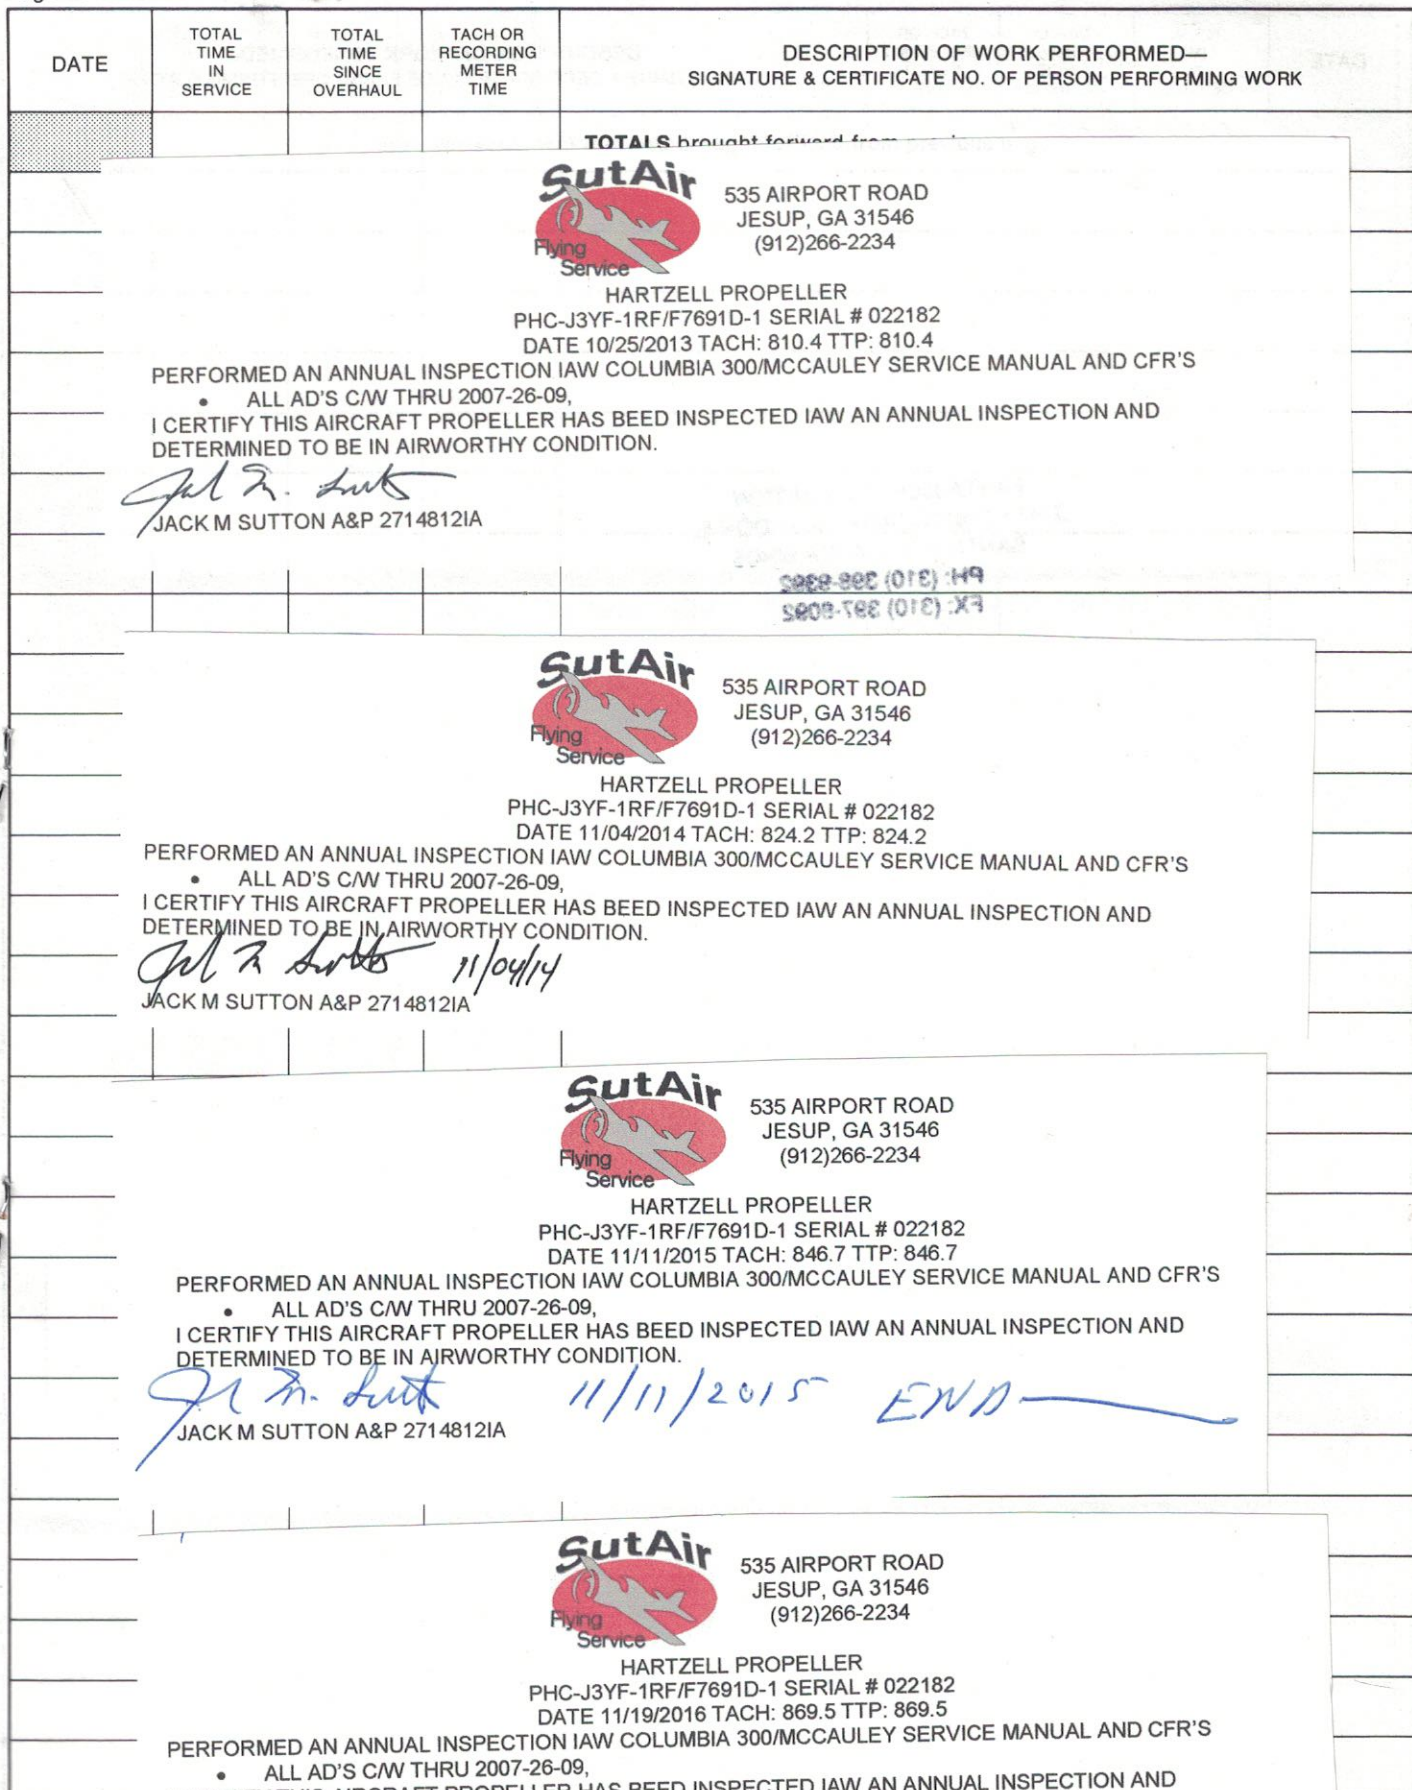 DATE
TOTAL
TIME
IN
SERVICE
TOTAL
TIME
SINCE
OVERHAUL
TACH OR
RECORDING
METER
TIME
DESCRIPTION OF WORK PERFORMED—
SIGNATURE & CERTIFICATE NO. OF PERSON PERFORMING WORK
TOTALS brought forward from
SutAir
Flying
Service
535 AIRPORT ROAD
JESUP, GA 31546
(912)266-2234
HARTZELL PROPELLER
PHC-J3YF-1RF/F7691D-1 SERIAL # 022182
DATE 10/25/2013 TACH: 810.4 TTP: 810.4
PERFORMED AN ANNUAL INSPECTION IAW COLUMBIA 300/MCCAULEY SERVICE MANUAL AND CFR'S
• ALL AD'S C/W THRU 2007-26-09,
I CERTIFY THIS AIRCRAFT PROPELLER HAS BEED INSPECTED IAW AN ANNUAL INSPECTION AND
DETERMINED TO BE IN AIRWORTHY CONDITION.
JACK M SUTTON A&P 2714812IA
SutAir
Flying
Service
535 AIRPORT ROAD
JESUP, GA 31546
(912)266-2234
HARTZELL PROPELLER
PHC-J3YF-1RF/F7691D-1 SERIAL # 022182
DATE 11/04/2014 TACH: 824.2 TTP: 824.2
PERFORMED AN ANNUAL INSPECTION IAW COLUMBIA 300/MCCAULEY SERVICE MANUAL AND CFR'S
• ALL AD'S C/W THRU 2007-26-09,
I CERTIFY THIS AIRCRAFT PROPELLER HAS BEED INSPECTED IAW AN ANNUAL INSPECTION AND
DETERMINED TO BE IN AIRWORTHY CONDITION.
11/04/14
JACK M SUTTON A&P 2714812IA
SutAir
Flying
Service
535 AIRPORT ROAD
JESUP, GA 31546
(912)266-2234
HARTZELL PROPELLER
PHC-J3YF-1RF/F7691D-1 SERIAL # 022182
DATE 11/11/2015 TACH: 846.7 TTP: 846.7
PERFORMED AN ANNUAL INSPECTION IAW COLUMBIA 300/MCCAULEY SERVICE MANUAL AND CFR'S
• ALL AD'S C/W THRU 2007-26-09,
I CERTIFY THIS AIRCRAFT PROPELLER HAS BEED INSPECTED IAW AN ANNUAL INSPECTION AND
DETERMINED TO BE IN AIRWORTHY CONDITION.
11/11/2015 END
JACK M SUTTON A&P 2714812IA
SutAir
Flying
Service
535 AIRPORT ROAD
JESUP, GA 31546
(912)266-2234
HARTZELL PROPELLER
PHC-J3YF-1RF/F7691D-1 SERIAL # 022182
DATE 11/19/2016 TACH: 869.5 TTP: 869.5
PERFORMED AN ANNUAL INSPECTION IAW COLUMBIA 300/MCCAULEY SERVICE MANUAL AND CFR'S
• ALL AD'S C/W THRU 2007-26-09,
AIRCRAFT PROPELLER HAS BEED INSPECTED IAW AN ANNUAL INSPECTION AND